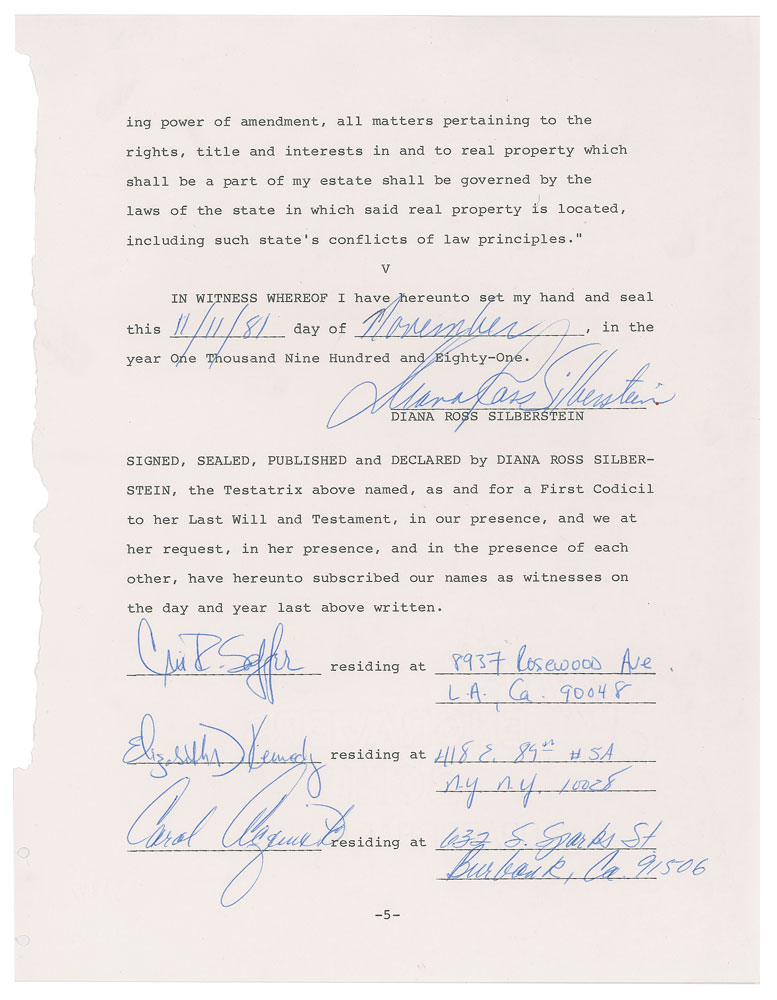 ing power of amendment, all matters pertaining to the
rights, title and interests in and to real property which
shall be a part of my estate shall be governed by the
laws of the state in which said real property is located,
including such state's conflicts of law principles."
V
IN WITNESS WHEREOF I have hereunto set my hand and seal
this 11/11/81 day of November, in the
year One Thousand Nine Hundred and Eighty-One.
Diana Ross Silberstein
DIANA ROSS SILBERSTEIN
SIGNED, SEALED, PUBLISHED and DECLARED by DIANA ROSS SILBER-
STEIN, the Testatrix above named, as and for a First Codicil
to her Last Will and Testament, in our presence, and we at
her request, in her presence, and in the presence of each
other, have hereunto subscribed our names as witnesses on
the day and year last above written.
residing at 8937 Rosewood Ave.
L.A., Ca. 90048
Elizabeth D Kennedy residing at 418 E. 89th #5A
NY NY. 10028
Carol residing at 632 S. Sparks St
Burbank, Ca. 91506
-5-